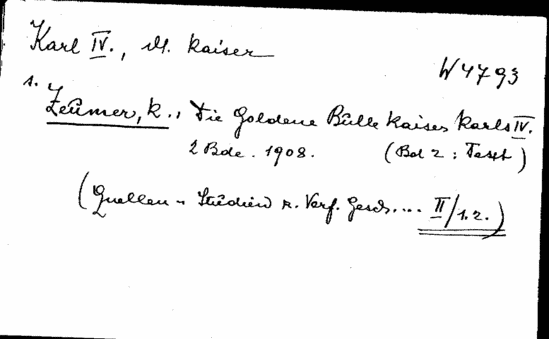 Karl IV., dt. Kaiser
W4793
s. Zeumer, K., Die Goldene Bulle Kaiser Karls IV.
2 Bde. 1908. (Bd 2: Text)
(Quellen u. Studien z. Verf. Gesch.... II/1.2.)